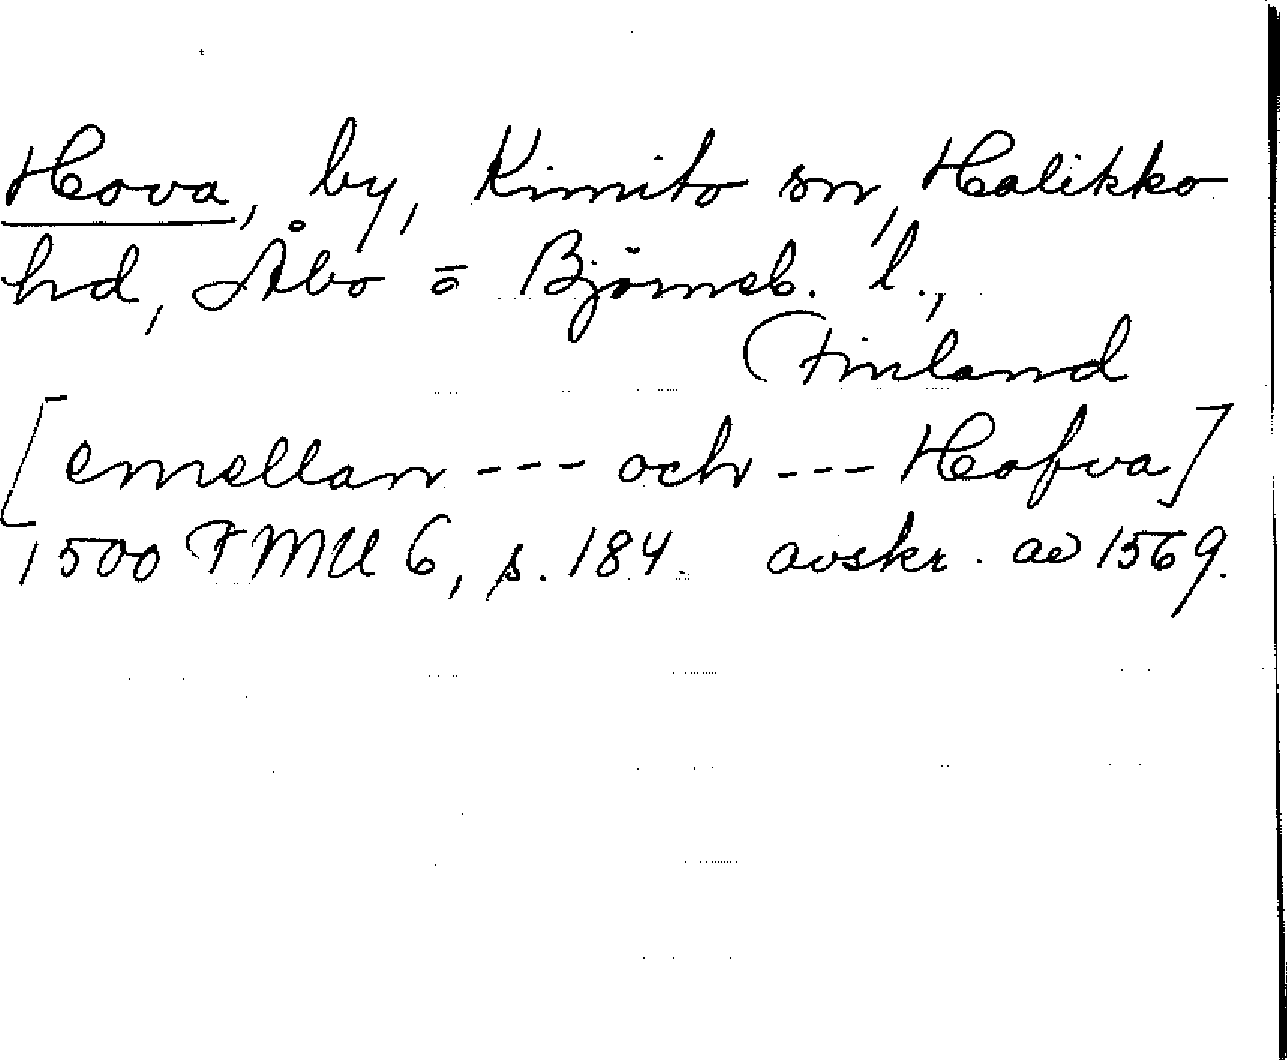 Hova, by, Kimito sn, Halikko
hd, Åbo o Björneb. l.,
Finland
[emellan --- och --- Hofva]
1500 FMU 6, s. 184. avskr. av 1569.